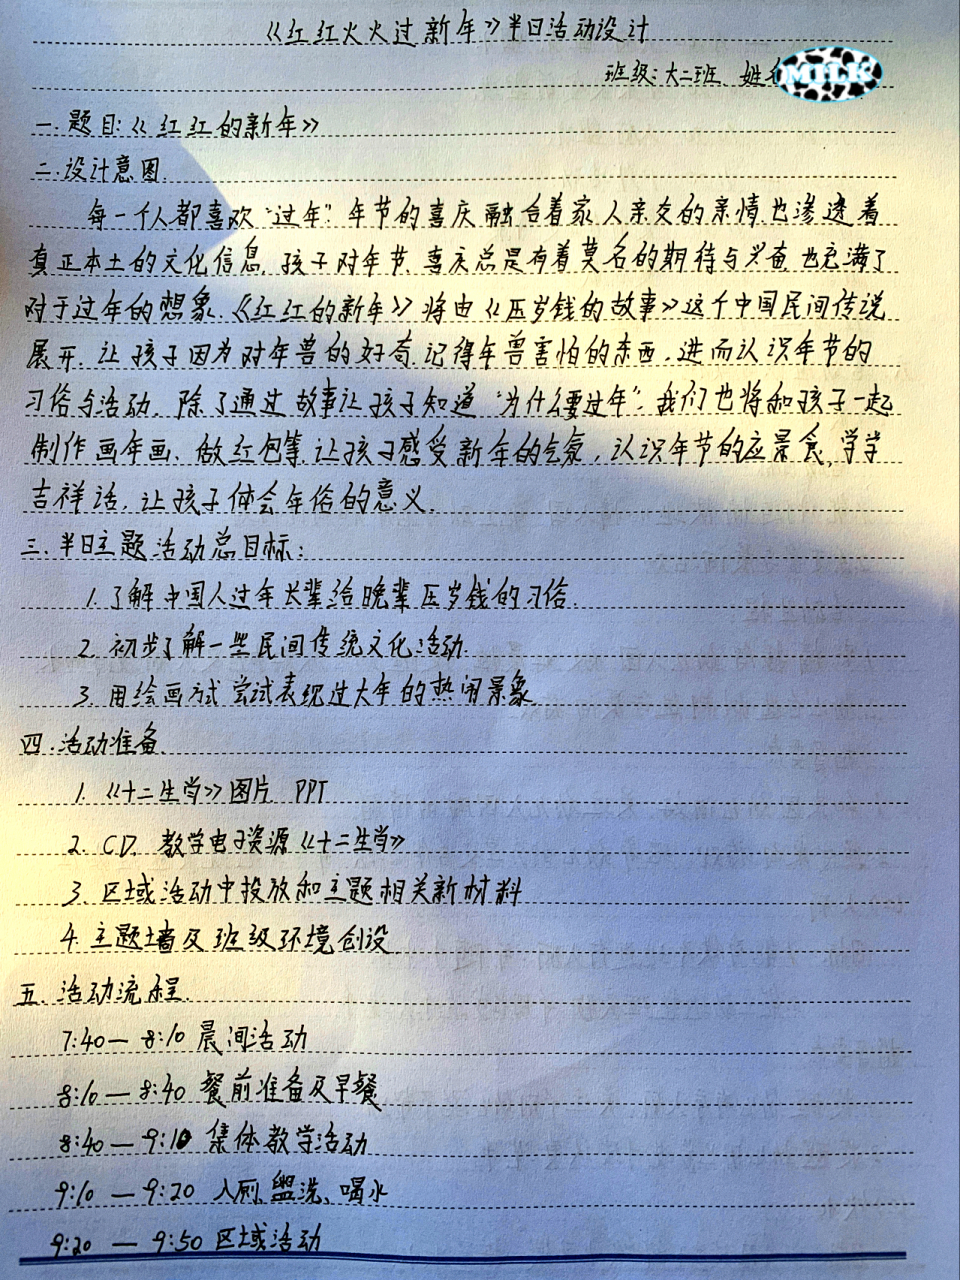 《红红火火过新年》半日活动设计
班级:大二班、姓名
MILK
一.题目:《红红的新年》
二.设计意图.
每一个人都喜欢“过年”.年节的喜庆融合着家人亲友的亲情也渗透着
真正本土的文化信息.孩子对年节.喜庆总是有着莫名的期待与兴奋也充满了
对于过年的想象.《红红的新年》将由《压岁钱的故事》这个中国民间传说
展开.让孩子因为对年兽的好奇.记得年兽害怕的东西.进而认识年节的
习俗与活动.除了通过故事让孩子知道“为什么要过年”.我们也将和孩子一起
制作画年画、做红包等.让孩子感受新年的气氛,认识年节的应景食,学学
吉祥话.让孩子体会年俗的意义.
三.半日主题活动总目标:
1.了解中国人过年长辈给晚辈压岁钱的习俗.
2.初步了解一些民间传统文化活动.
3.用绘画方式尝试表现过大年的热闹景象.
四.活动准备.
1.《十二生肖》图片 PPT
2.CD.教学电子资源《十二生肖》
3.区域活动中投放和主题相关新材料
4.主题墙及班级环境创设.
五.活动流程.
7:40—8:10 晨间活动
8:10—8:40 餐前准备及早餐
8:40—9:10 集体教学活动
9:10—9:20 入厕、盥洗、喝水
9:20—9:50 区域活动